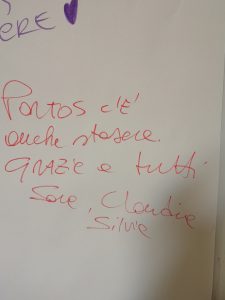 ERE
PONTOS c'E'
anche stasera.
GRAZIE a tutti
Sara, Claudia
Silvia